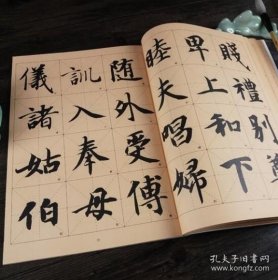 賤禮別尊
卑上和下
睦夫唱婦
随外受傅
訓入奉母
儀諸姑伯
孔夫子旧书网